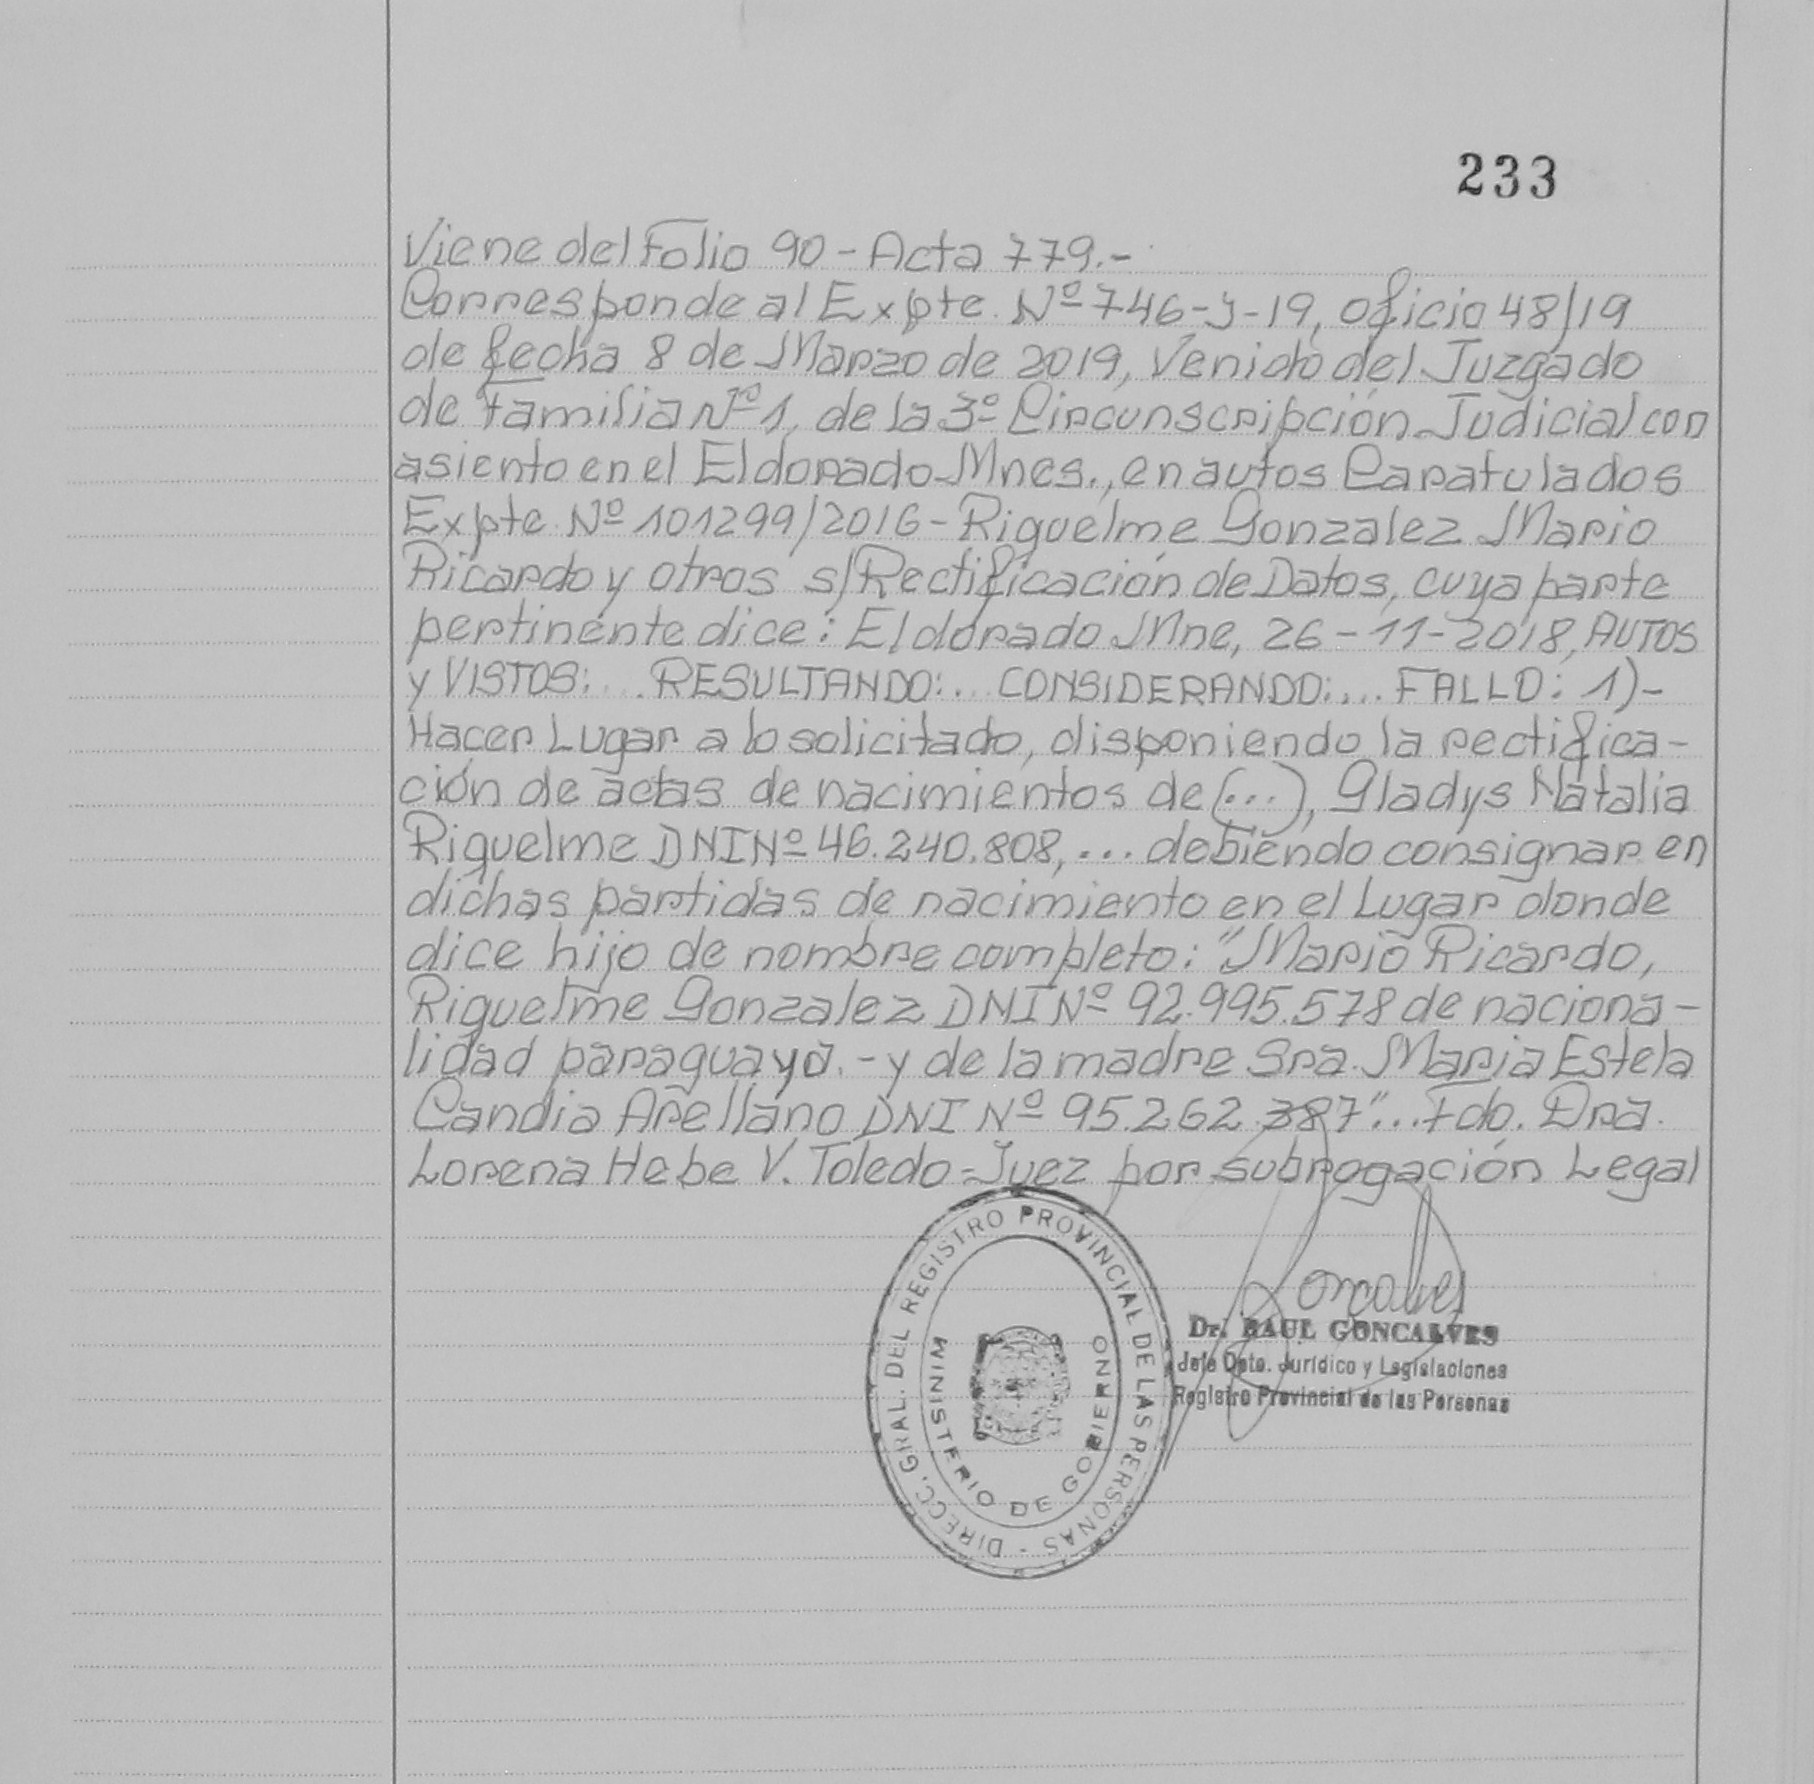 233
Viene del Folio 90 - Acta 779.-
Corresponde al Expte. Nº 746-J-19, oficio 48/19
de fecha 8 de Marzo de 2019, Venido del Juzgado
de Familia Nº 1, de la 3º Circunscripción Judicial con
asiento en el Eldorado-Mnes., en autos Caratulados
Expte. Nº 101299/2016 - Riquelme Gonzalez Mario
Ricardo y otros s/Rectificación de Datos, cuya parte
pertinente dice: Eldorado Mne, 26-11-2018, AUTOS
y VISTOS:... RESULTANDO:... CONSIDERANDO:... FALLO: 1)-
Hacer Lugar a lo solicitado, disponiendo la rectifica-
ción de actas de nacimientos de (...), Gladys Natalia
Riquelme DNI Nº 46.240.808, ... debiendo consignar en
dichas partidas de nacimiento en el Lugar donde
dice hijo de nombre completo: "Mario Ricardo,
Riquelme Gonzalez DNI Nº 92.995.578 de naciona-
lidad paraguaya. - y de la madre Sra. Maria Estela
Candia Arellano DNI Nº 95.262.387"... Fdo. Dra.
Lorena Hebe V. Toledo - Juez por subrogación Legal
DIRECC. GRAL. DEL REGISTRO PROVINCIAL DE LAS PERSONAS -
MINISTERIO DE GOBIERNO
Goncalves
Dr. RAUL GONCALVES
Jefe Dpto. Jurídico y Legislaciones
Registro Provincial de las Personas